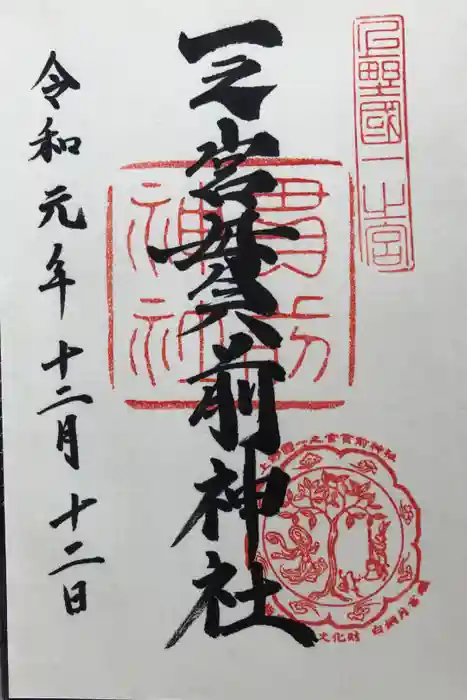 上野國一之宮
一之宮貫前神社
貫前神社
令和元年十二月十二日
上野國一之宮貫前神社
文化財 白銅月宮鑑